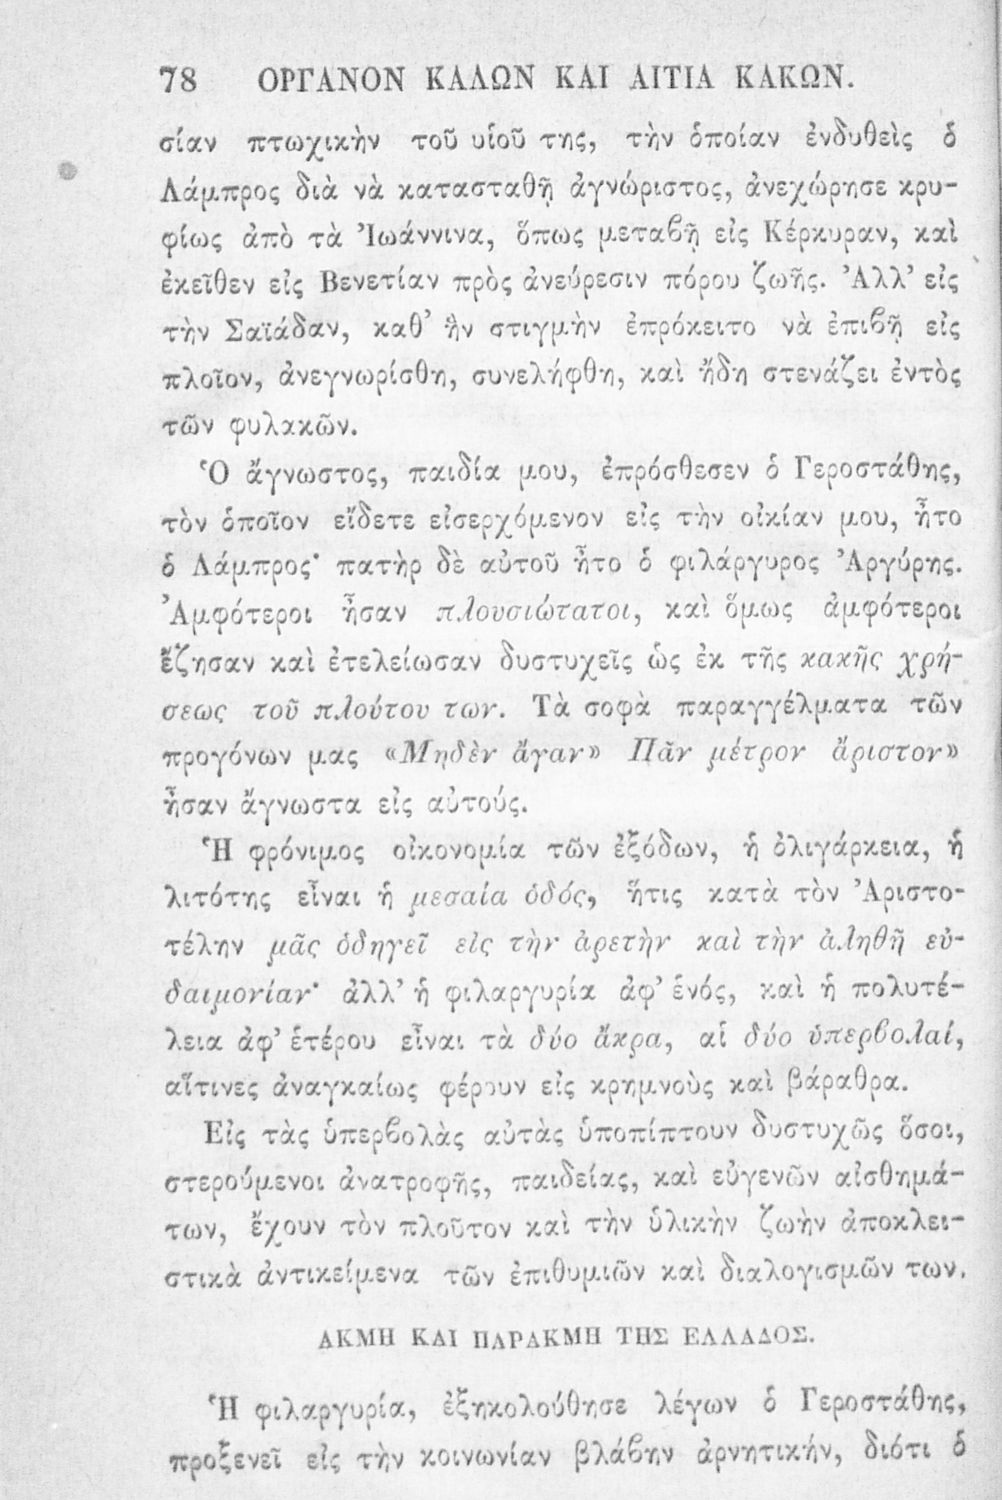 78 ΟΡΓΑΝΟΝ ΚΑΛΩΝ ΚΑΙ ΑΙΤΙΑ ΚΑΚΩΝ.
σίαν πτωχικὴν τοῦ υἱοῦ της, τὴν ὁποίαν ἐνδυθεὶς ὁ
Λάμπρος διὰ νὰ κατασταθῇ ἀγνώριστος, ἀνεχώρησε κρυ-
φίως ἀπὸ τὰ Ἰωάννινα, ὅπως μεταβῇ εἰς Κέρκυραν, καὶ
ἐκεῖθεν εἰς Βενετίαν πρὸς ἀνεύρεσιν πόρου ζωῆς. Ἀλλ’ εἰς
τὴν Σαϊάδαν, καθ’ ἣν στιγμὴν ἐπρόκειτο νὰ ἐπιβῇ εἰς
πλοῖον, ἀνεγνωρίσθη, συνελήφθη, καὶ ἤδη στενάζει ἐντὸς
τῶν φυλακῶν.
Ὁ ἄγνωστος, παιδία μου, ἐπρόσθεσεν ὁ Γεροστάθης,
τὸν ὁποῖον εἴδετε εἰσερχόμενον εἰς τὴν οἰκίαν μου, ἦτο
ὁ Λάμπρος· πατὴρ δὲ αὐτοῦ ἦτο ὁ φιλάργυρος Ἀργύρης.
Ἀμφότεροι ἦσαν πλουσιώτατοι, καὶ ὅμως ἀμφότεροι
ἔζησαν καὶ ἐτελείωσαν δυστυχεῖς ὡς ἐκ τῆς κακῆς χρή-
σεως τοῦ πλούτου των. Τὰ σοφὰ παραγγέλματα τῶν
προγόνων μας «Μηδὲν ἄγαν» Πᾶν μέτρον ἄριστον»
ἦσαν ἄγνωστα εἰς αὐτούς.
Ἡ φρόνιμος οἰκονομία τῶν ἐξόδων, ἡ ὀλιγάρκεια, ἡ
λιτότης εἶναι ἡ μεσαία ὁδός, ἥτις κατὰ τὸν Ἀριστο-
τέλην μᾶς ὁδηγεῖ εἰς τὴν ἀρετὴν καὶ τὴν ἀληθῆ εὐ-
δαιμονίαν· ἀλλ’ ἡ φιλαργυρία ἀφ’ ἑνός, καὶ ἡ πολυτέ-
λεια ἀφ’ ἑτέρου εἶναι τὰ δύο ἄκρα, αἱ δύο ὑπερβολαί,
αἵτινες ἀναγκαίως φέρουν εἰς κρημνοὺς καὶ βάραθρα.
Εἰς τὰς ὑπερβολὰς αὐτὰς ὑποπίπτουν δυστυχῶς ὅσοι,
στερούμενοι ἀνατροφῆς, παιδείας, καὶ εὐγενῶν αἰσθημά-
των, ἔχουν τὸν πλοῦτον καὶ τὴν ὑλικὴν ζωὴν ἀποκλει-
στικὰ ἀντικείμενα τῶν ἐπιθυμιῶν καὶ διαλογισμῶν των.
ΑΚΜΗ ΚΑΙ ΠΑΡΑΚΜΗ ΤΗΣ ΕΛΛΑΔΟΣ.
Ἡ φιλαργυρία, ἐξηκολούθησε λέγων ὁ Γεροστάθης,
προξενεῖ εἰς τὴν κοινωνίαν βλάβην ἀρνητικήν, διότι ὁ